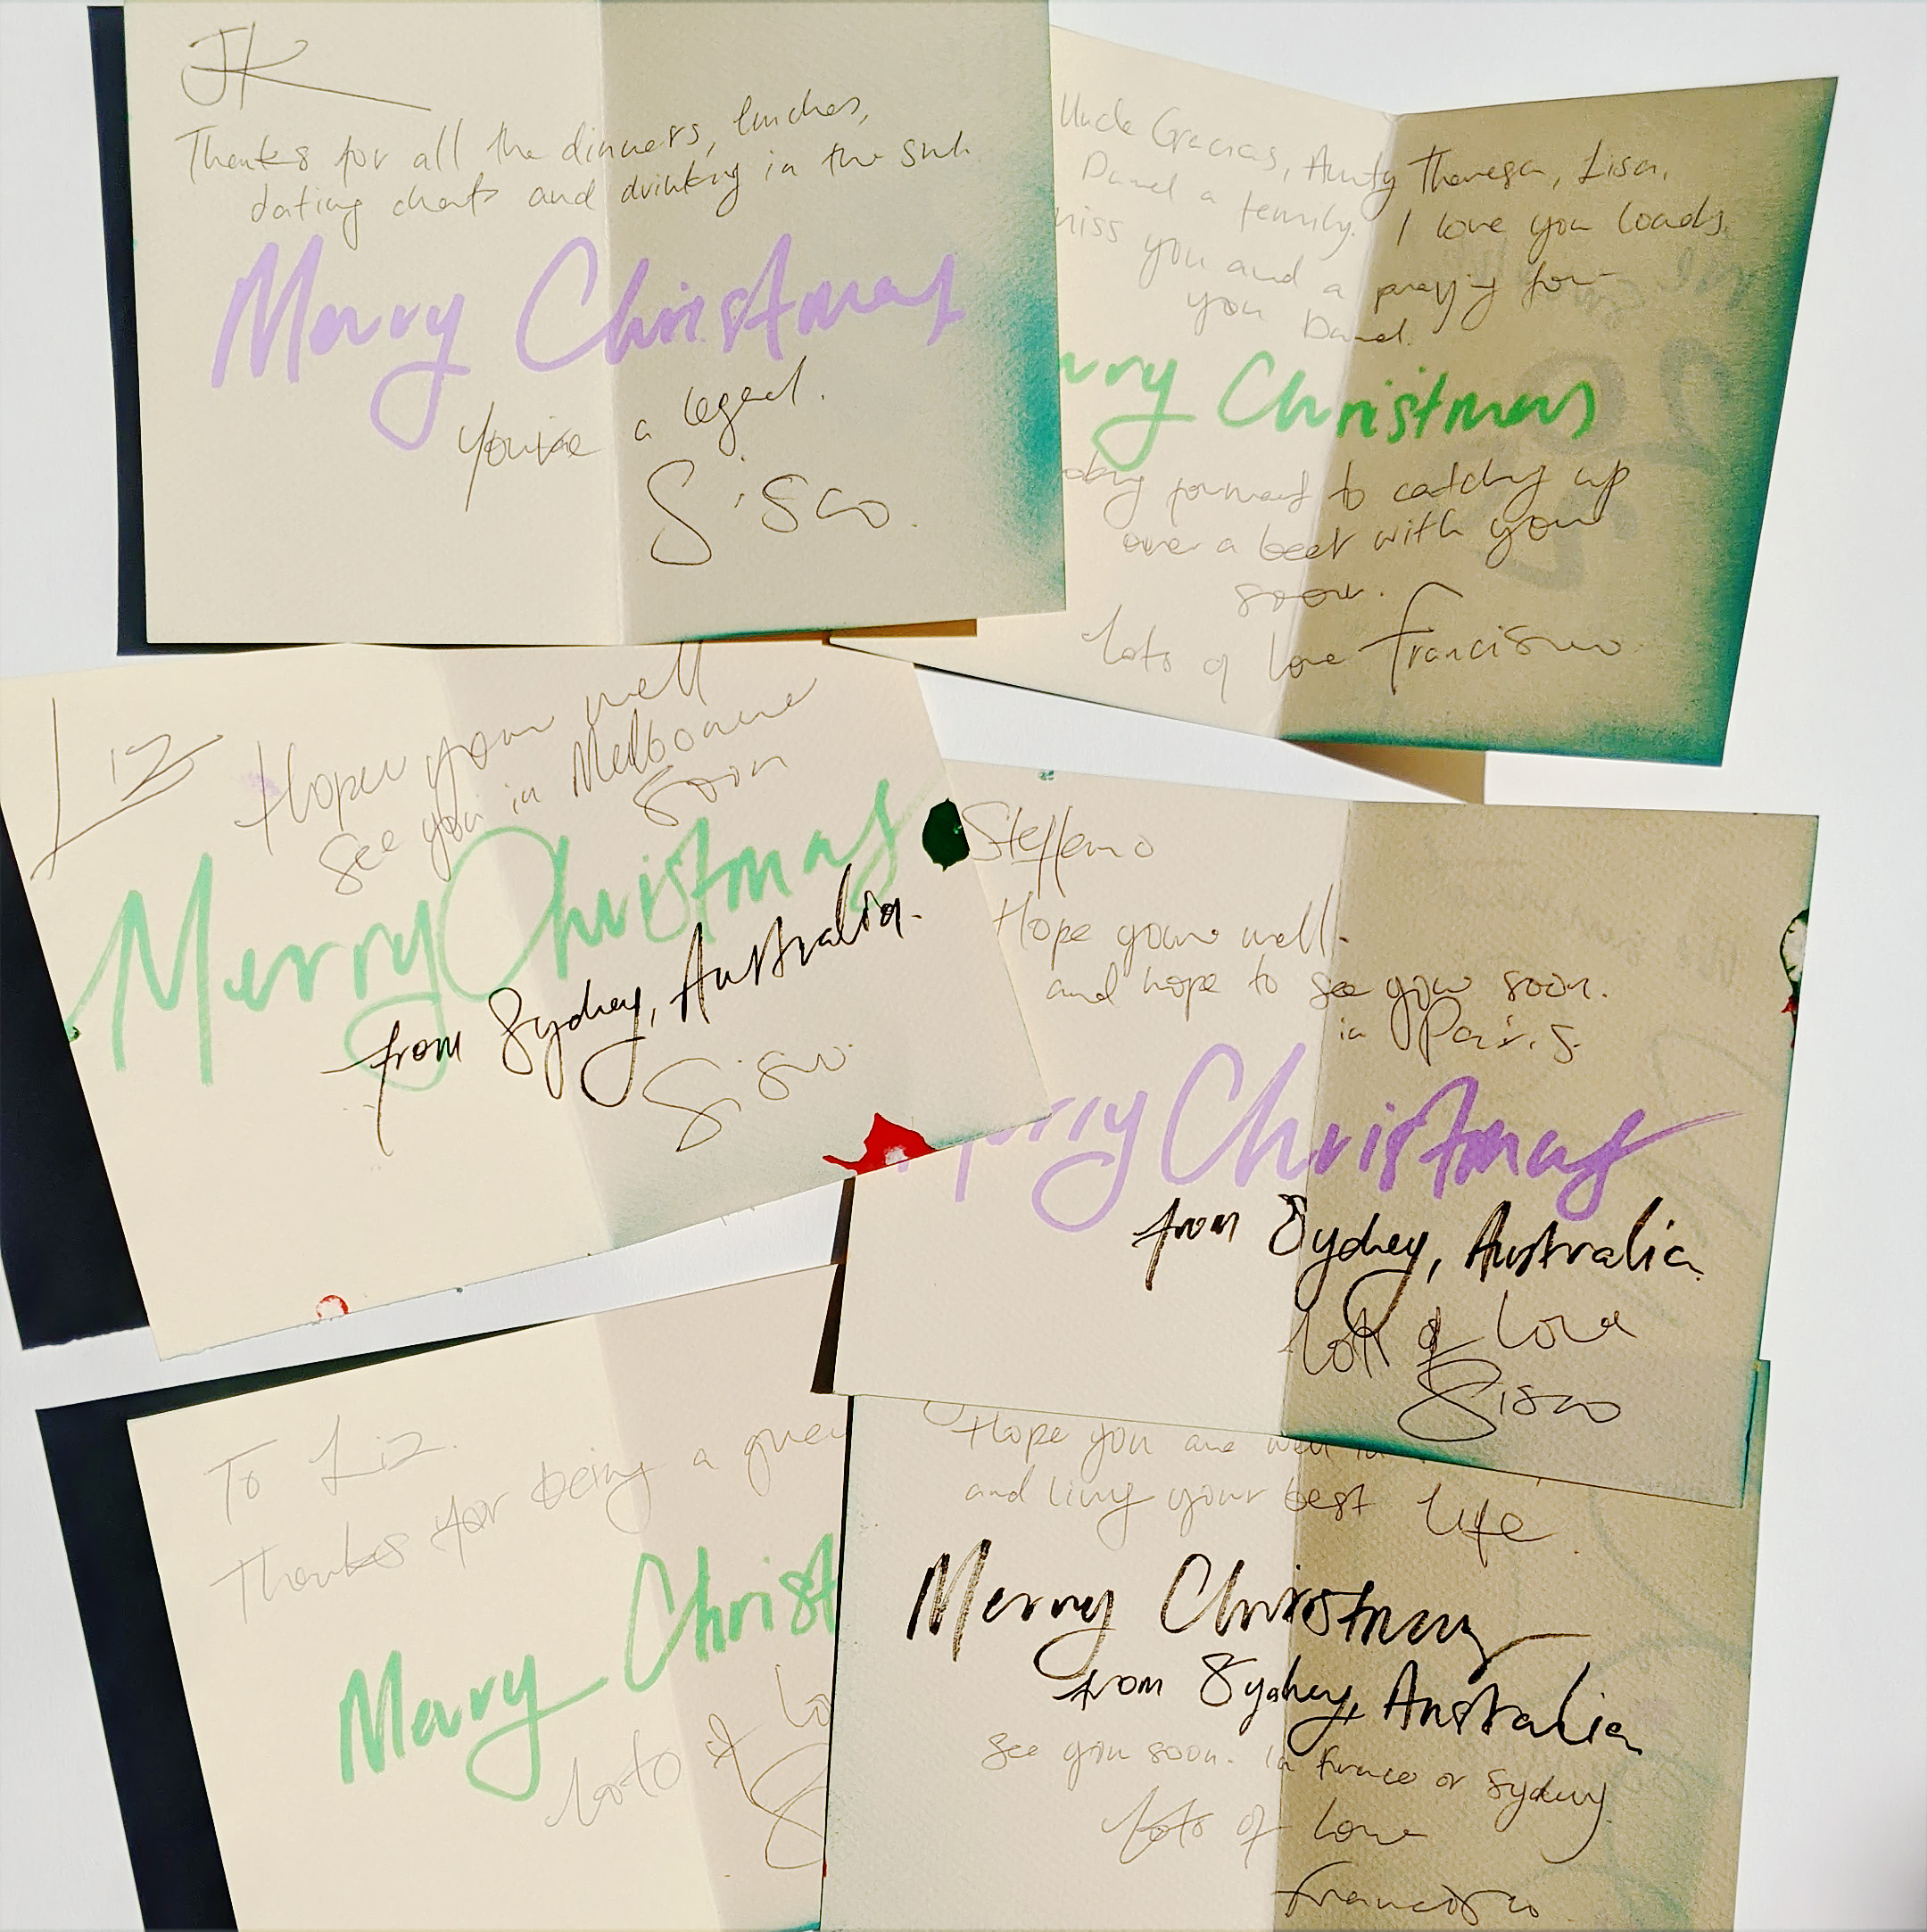 JK
Thanks for all the dinners, lunches,
dating chats and drinking in the sun
Merry Christmas
you're a legend.
Sisco.
Uncle Gracias, Aunty Theresa, Lisa,
Daniel & family. I love you loads.
miss you and a praying for
you Daniel.
rry Christmas
forward to catching up
over a beer with you
soon.
lots of love Francisco
Liz
Hope your well
see you in Melbourne
soon
Merry Christmas
from Sydney, Australia.
Sisco.
Steffano
Hope youre well.
and hope to see you soon.
in Paris.
Merry Christmas
from Sydney, Australia
lots of love
Sisco
To Liz.
Thanks for being a
Merry Christ
lots of lo
Hope you are well in
and living your best life.
Merry Christmas
from Sydney, Australia
see you soon. in France or Sydney
lots of love
Francisco.